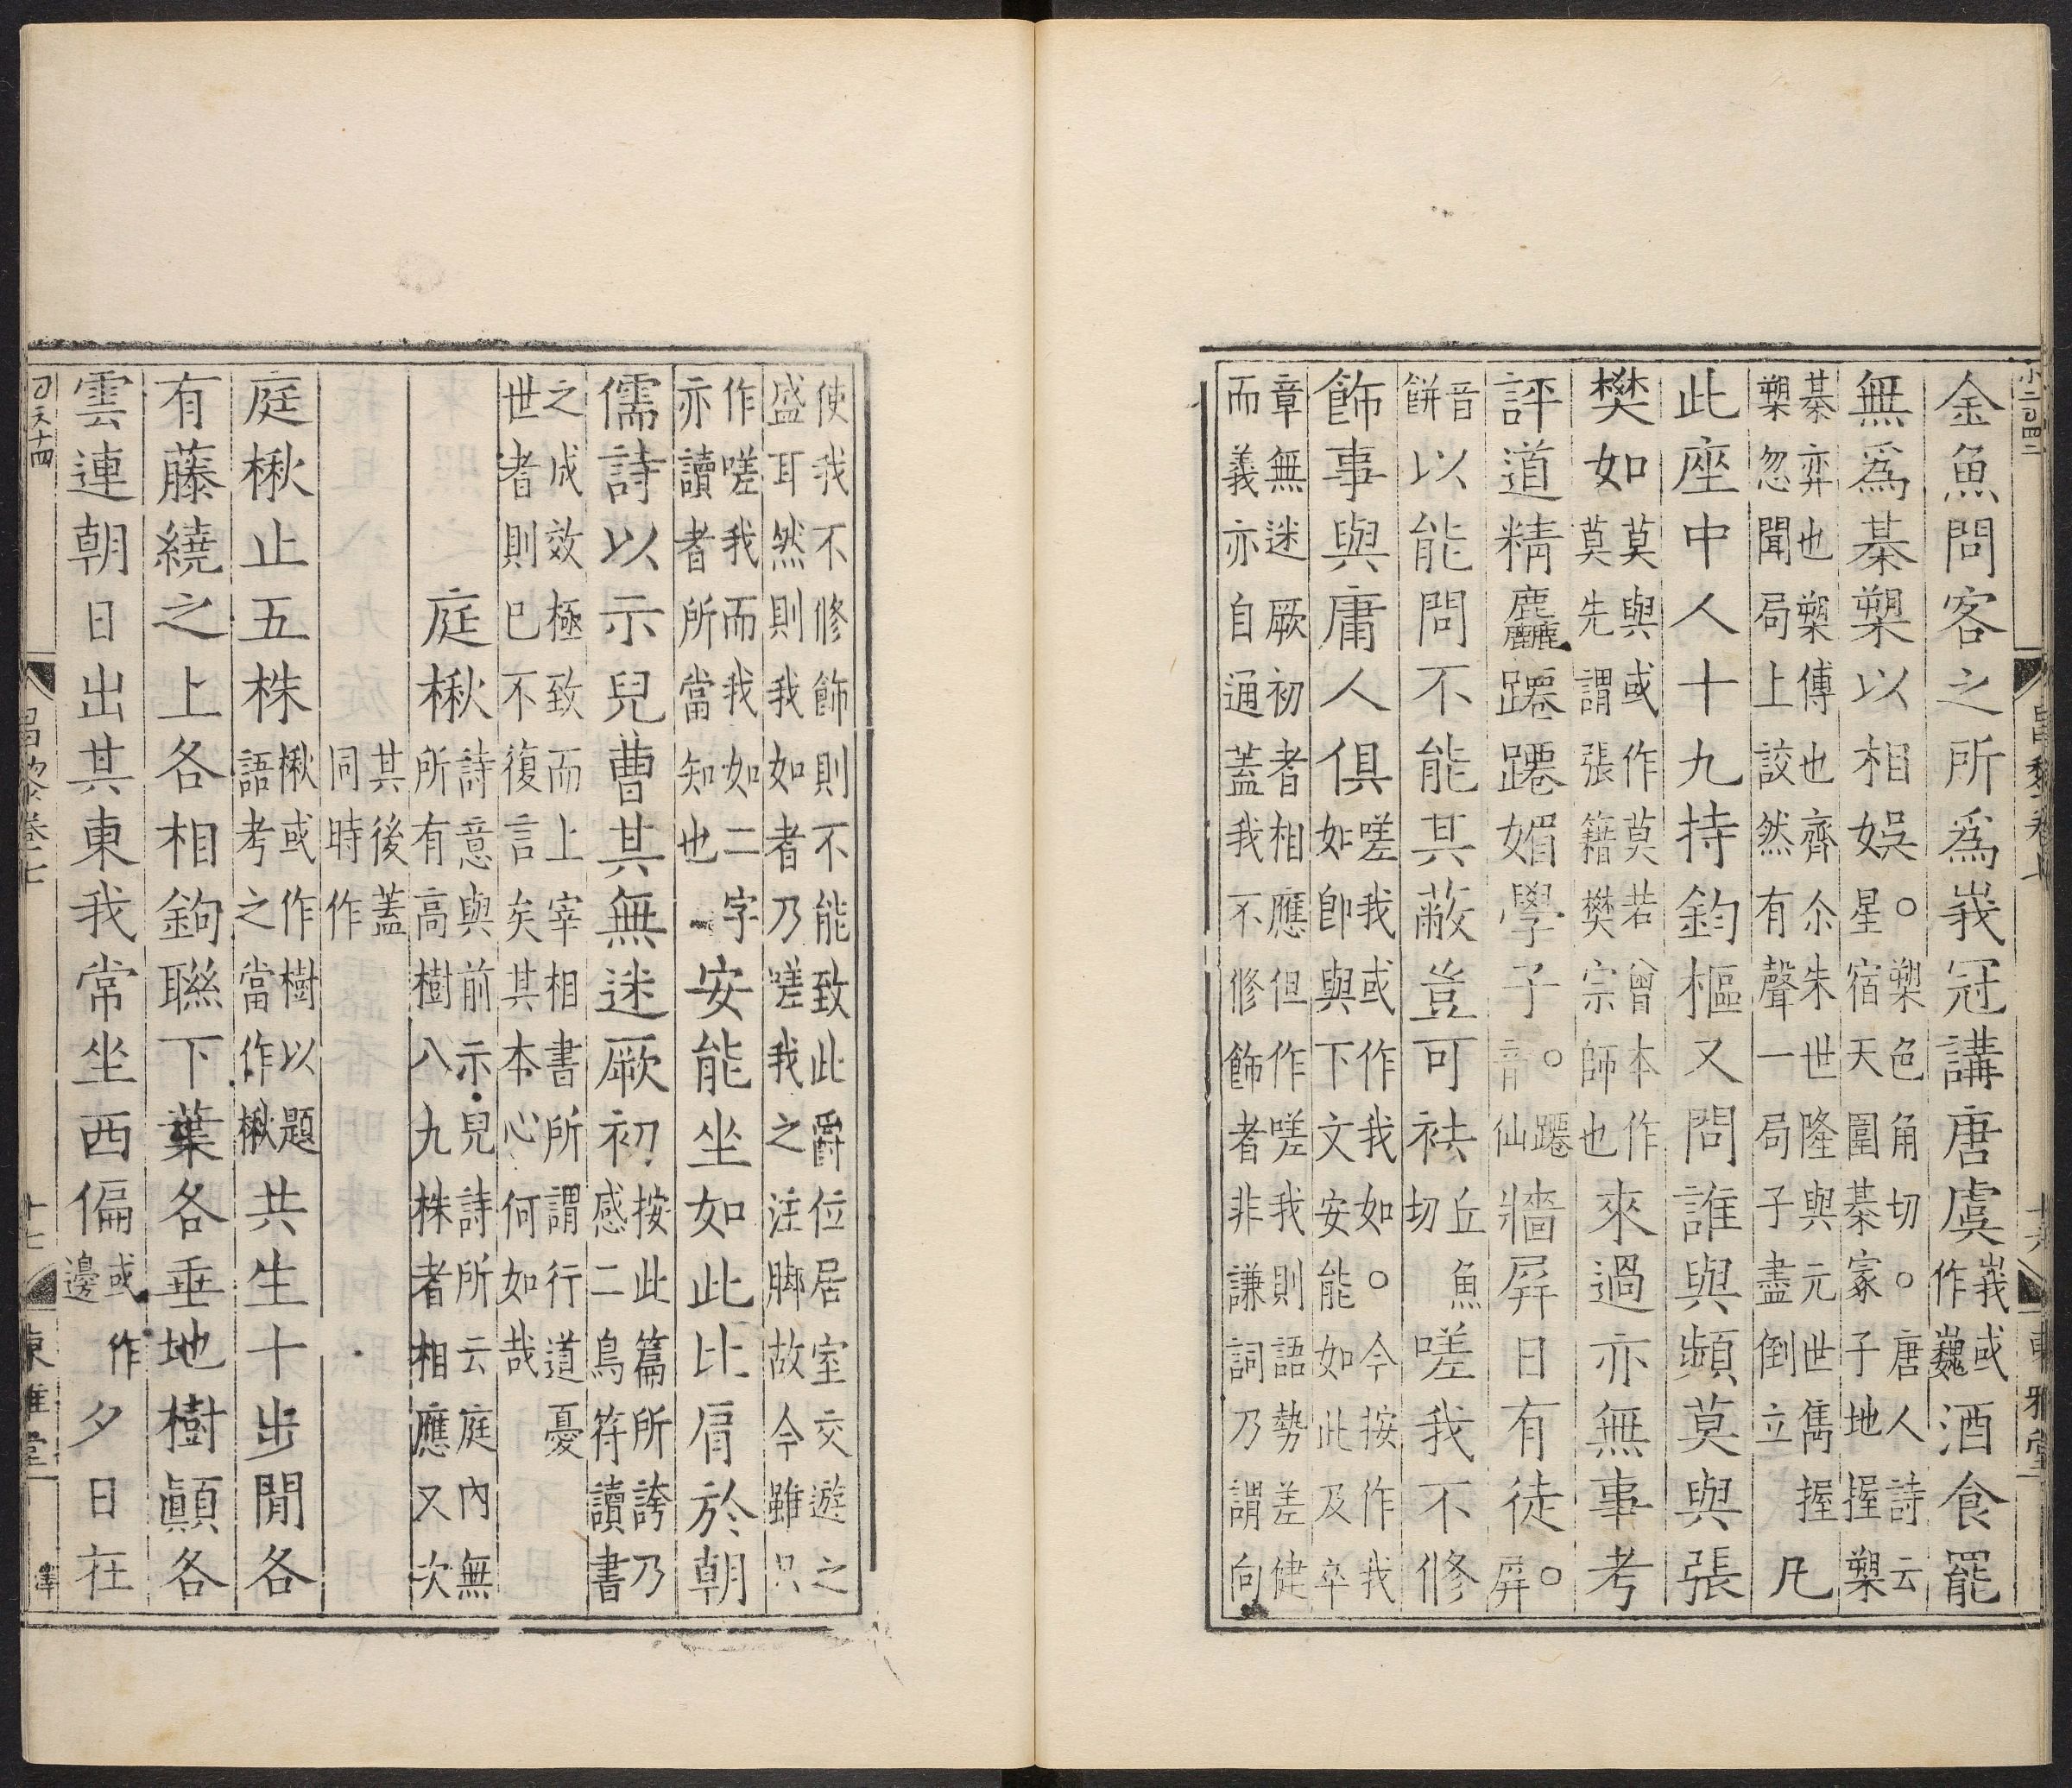 小二百四二 昌黎卷七 十六 東雅堂
金魚問客之所爲峩冠講唐虞峩或作巍酒食罷
無爲棊槊以相娛。槊色角切。唐人詩云星宿天圍棊家子地握槊
棊弈也槊傅也齊尒朱世隆與元世雋握槊忽聞局上詨然有聲一局子盡倒立凡
此座中人十九持鈞樞又問誰與頻莫與張
樊如莫與或作莫若曾本作莫先謂張籍樊宗師也來過亦無事考
評道精麤躚躚媚學子。躚音仙牆屏日有徒。屏
音餅以能問不能其蔽豈可袪丘魚切嗟我不修
飾事與庸人俱嗟我或作我如。今按作我如即與下文安能如此及卒
章無迷厥初者相應但作嗟我則語勢差健而義亦自通蓋我不修飾者非謙詞乃謂向
使我不修飾則不能致此爵位居室交遊之盛耳然則我如者乃嗟我之注脚故今雖只
作嗟我而我如二字亦讀者所當知也安能坐如此比肩於朝
儒詩以示兒曹其無迷厥初按此篇所誇乃感二鳥符讀書
之成效極致而上宰相書所謂行道憂世者則已不復言矣其本心何如哉
庭楸詩意與前示兒詩所云庭內無所有高樹八九株者相應又次
其後蓋同時作
庭楸止五株楸或作樹以題語考之當作楸共生十步閒各
有藤繞之上各相鉤聯下葉各垂地樹顚各
雲連朝日出其東我常坐西偏或作邊夕日在
昌黎卷七 十七 東雅堂 澤